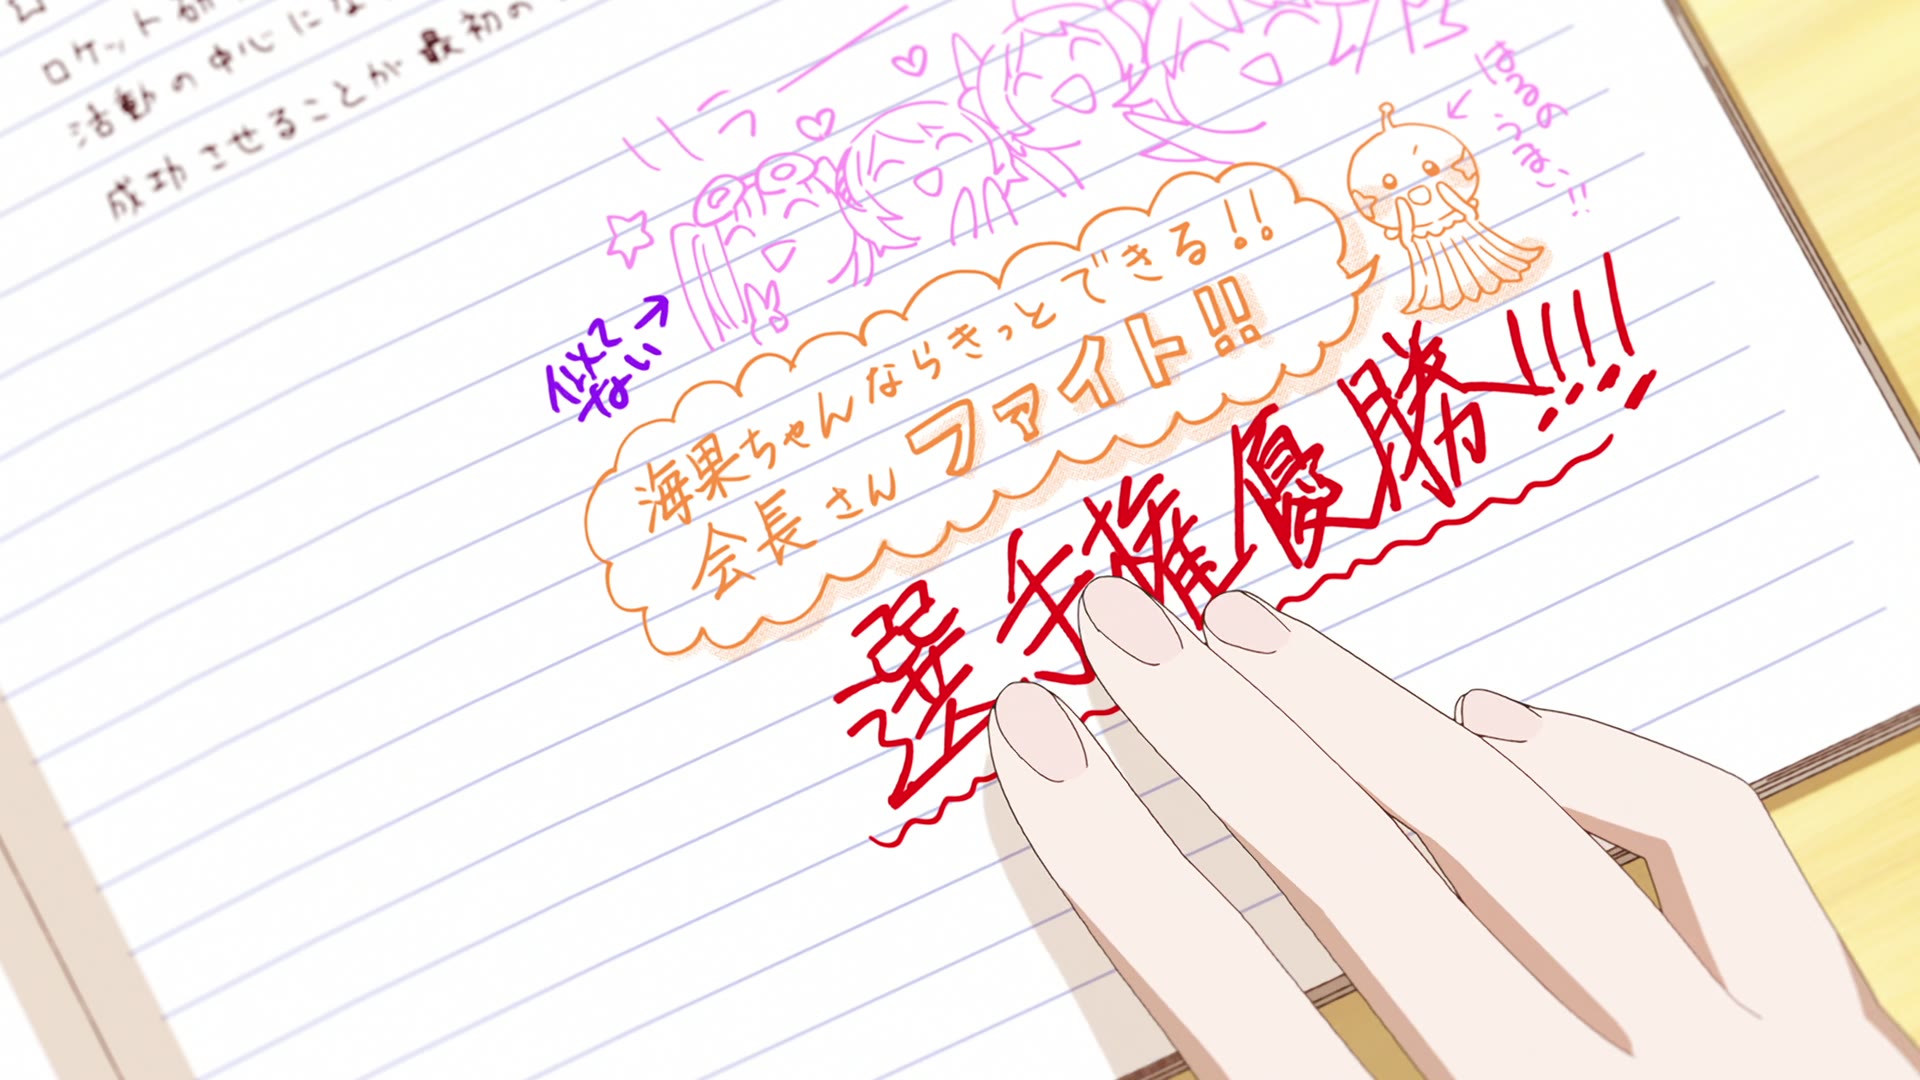 ロケット研
活動の中心にな
成功させることが最初の
はるの
うまい!!
似て
ない
海果ちゃんならきっとできる!!
会長さんファイト!!
選手権優勝!!!!